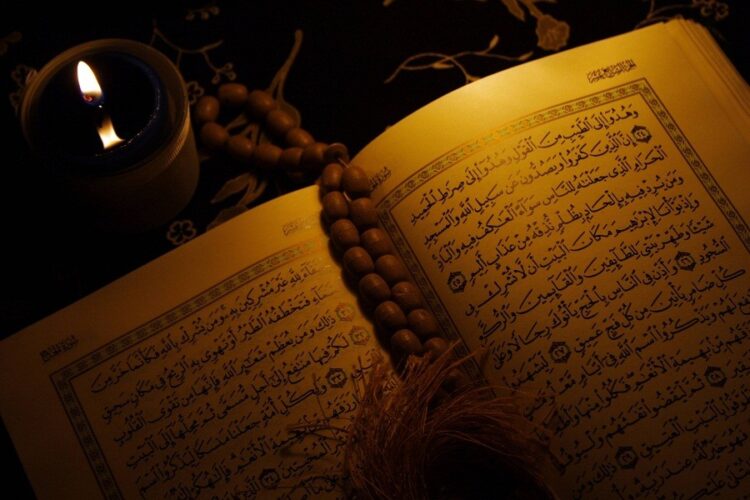 الجزء السابع عشر
وَهُدُوٓا۟ إِلَى ٱلطَّيِّبِ مِنَ ٱلْقَوْلِ وَهُدُوٓا۟ إِلَىٰ صِرَٰطِ ٱلْحَمِيدِ
٢٤ إِنَّ ٱلَّذِينَ كَفَرُوا۟ وَيَصُدُّونَ عَن سَبِيلِ ٱللَّهِ وَٱلْمَسْجِدِ
ٱلْحَرَامِ ٱلَّذِى جَعَلْنَٰهُ لِلنَّاسِ سَوَآءً ٱلْعَٰكِفُ فِيهِ وَٱلْبَادِ
وَمَن يُرِدْ فِيهِ بِإِلْحَادٍۭ بِظُلْمٍ نُّذِقْهُ مِنْ عَذَابٍ أَلِيمٍ ٢٥
وَإِذْ بَوَّأْنَا لِإِبْرَٰهِيمَ مَكَانَ ٱلْبَيْتِ أَن لَّا تُشْرِكْ بِى
شَيْـًٔا وَطَهِّرْ بَيْتِىَ لِلطَّآئِفِينَ وَٱلْقَآئِمِينَ وَٱلرُّكَّعِ
ٱلسُّجُودِ ٢٦ وَأَذِّن فِى ٱلنَّاسِ بِٱلْحَجِّ يَأْتُوكَ رِجَالًا وَعَلَىٰ
كُلِّ ضَامِرٍ يَأْتِينَ مِن كُلِّ فَجٍّ عَمِيقٍ ٢٧ لِّيَشْهَدُوا۟
لَهُمْ وَيَذْكُرُوا۟ ٱسْمَ ٱللَّهِ فِىٓ أَيَّامٍ مَّعْلُومَٰتٍ
رَزَقَهُم مِّنۢ بَهِيمَةِ ٱلْأَنْعَٰمِ فَكُلُوا۟ مِنْهَا وَأَطْعِمُوا۟
٢٨ ثُمَّ لْيَقْضُوا۟ تَفَثَهُمْ وَلْيُوفُوا۟
بِٱلْبَيْتِ ٱلْعَتِيقِ ٢٩ ذَٰلِكَ
سورة الحج
لِلَّهِ غَيْرَ مُشْرِكِينَ بِهِۦ وَمَن يُشْرِكْ بِٱللَّهِ فَكَأَنَّمَا خَرَّ مِنَ
فَتَخْطَفُهُ ٱلطَّيْرُ أَوْ تَهْوِى بِهِ ٱلرِّيحُ فِى مَكَانٍ سَحِيقٍ
ذَٰلِكَ وَمَن يُعَظِّمْ شَعَٰٓئِرَ ٱللَّهِ فَإِنَّهَا مِن تَقْوَى ٱلْقُلُوبِ
٣٢ لَكُمْ فِيهَا مَنَٰفِعُ إِلَىٰٓ أَجَلٍ مُّسَمًّى ثُمَّ مَحِلُّهَآ إِلَى ٱلْبَيْتِ
٣٣ وَلِكُلِّ أُمَّةٍ جَعَلْنَا مَنسَكًا لِّيَذْكُرُوا۟ ٱسْمَ